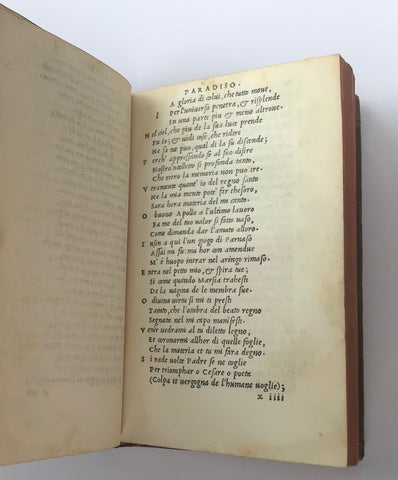 PARADISO.
A gloria di colui, che tutto move,
l Per l'universo penetra, & risplende
In una parte piu & meno altrove.
N el ciel, che piu de la sua luce prende
Fu io; & vidi cose, che ridire
Ne sa ne puo, qual di la su discende;
P erch' appressando se al suo disire
Nostro intelletto si profonda tanto,
Che retro la memoria non puo ire.
V eramente quant' io del regno santo
Ne la mia mente pote' far thesoro,
Sara hora materia del mio canto.
O buono Apollo a l'ultimo lavoro
Fa me del tuo valor si fatto vaso,
Come dimanda dar l'amato alloro.
I nfin a qui l'un giogo di Parnaso
Assai mi fu: ma hor con amendue
M' è huopo intrar ne l'aringo rimaso.
E ntra nel petto mio, & spira tue;
Si come quando Marsia trahesti
De la vagina de le membra sue.
O divina vertu si mi ti presti
Tanto, che l'ombra del beato regno
Segnata nel mi capo manifesti.
V enir vedrami al tu diletto legno,
Et coronarmi allhor di quelle foglie,
Che la materia et tu mi fara degno.
S i rade volte Padre se ne coglie
Per triomphar o Cesare o poeta
(Colpa et vergogna de l'humane voglie);
x iiii